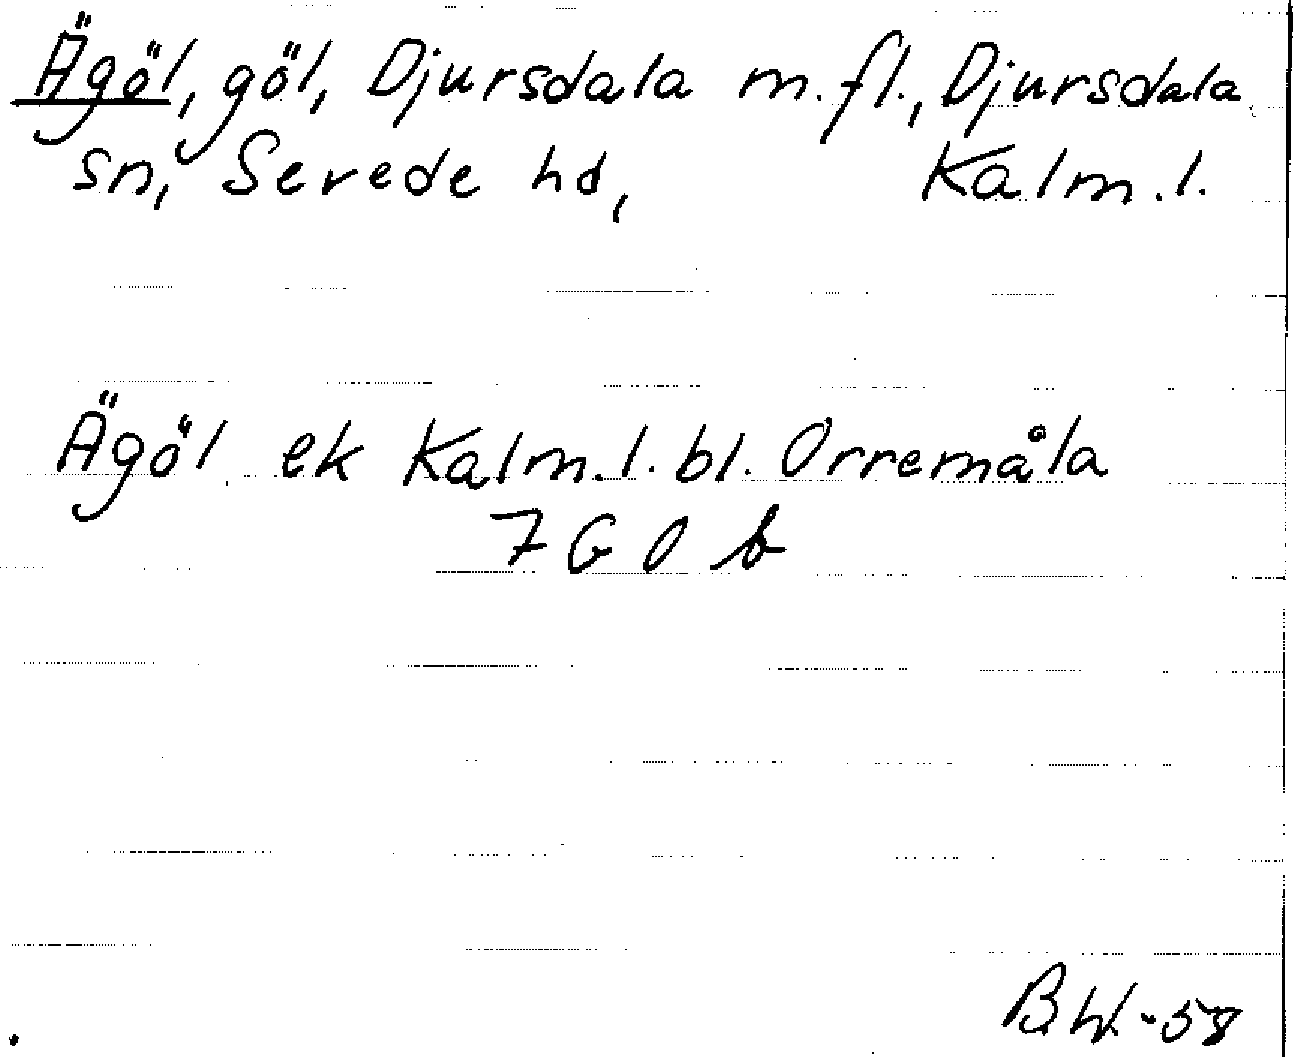 Ägöl, göl, Djursdala m.fl., Djursdala
sn, Serede hd, Kalm.l.
Ägöl ek Kalm.l. bl. Orremåla
7 G 0 b
BW-58